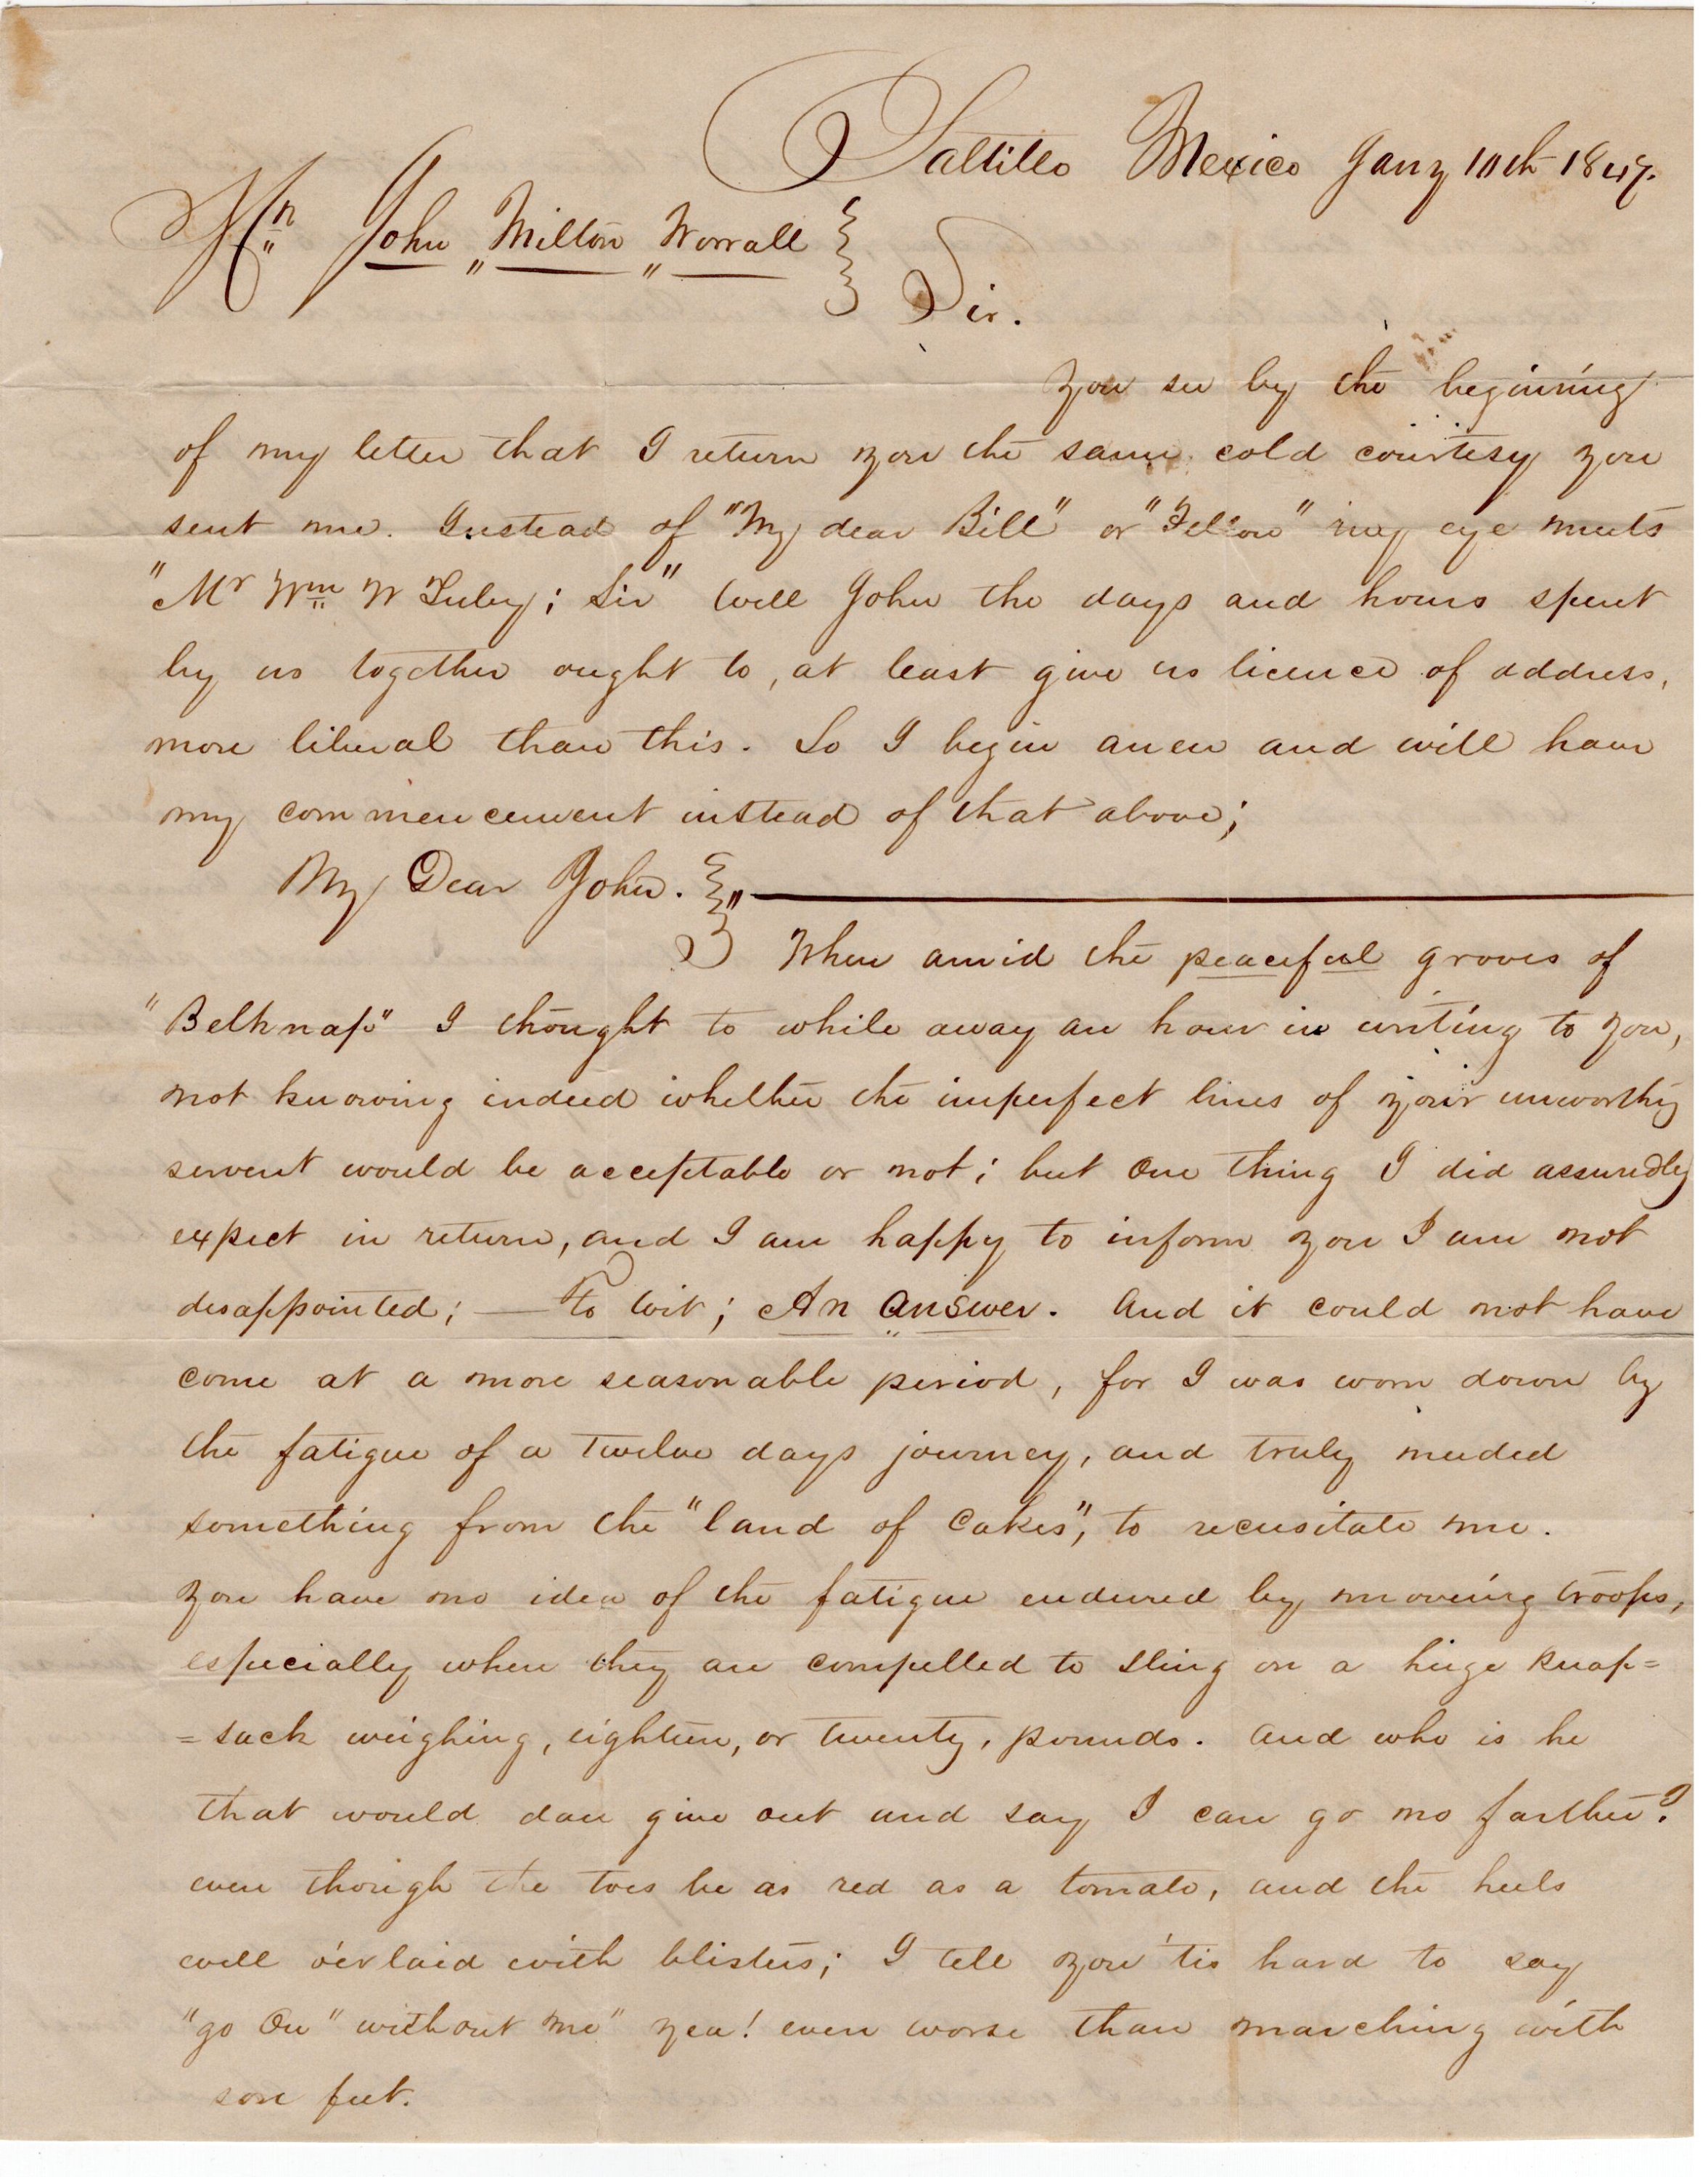 Saltillo Mexico Jany 10th 1847.
Mr John Milton Worrall
Sir.
You see by the begining
of my letter that I return you the same cold courtesy you
sent me. Instead of "My dear Bill" or "Fellow" my eye meets
"Mr Wm W Tuley; Sir" Well John the days and hours spent
by us together ought to, at least give us licence of address,
more liberal than this. So I begin anew and will have
my commencement instead of that above;
My Dear John.
When amid the peaceful groves of
"Belknap" I thought to while away an hour in writing to you,
not knowing indeed whether the imperfect lines of your unworthy
servent would be acceptable or not; but One thing I did assuredly
expect in return, and I am happy to inform you I am not
disappointed; — to wit; An answer. And it could not have
come at a more seasonable period, for I was worn down by
the fatigue of a twelve days journey, and truly needed
something from the "land of Cakes", to recusitate me.
You have no idea of the fatigue endured by moveing troops,
especially when they are compelled to sling on a huge knap=
=sack weighing, eighteen, or twenty, pounds. And who is he
that would dare give out and say I can go no farther?
even though the toes be as red as a tomato, and the heels
well o'erlaid with blisters; I tell you 'tis hard to say
"go On" without me" yea! even worse than marching with
sore feet.